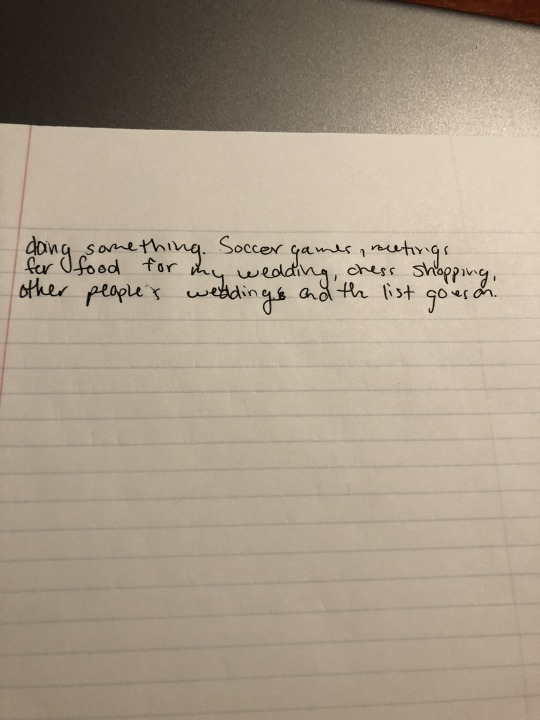 doing something. Soccer games, meetings
for food for my wedding, dress shopping,
other people's weddings and the list goes on.